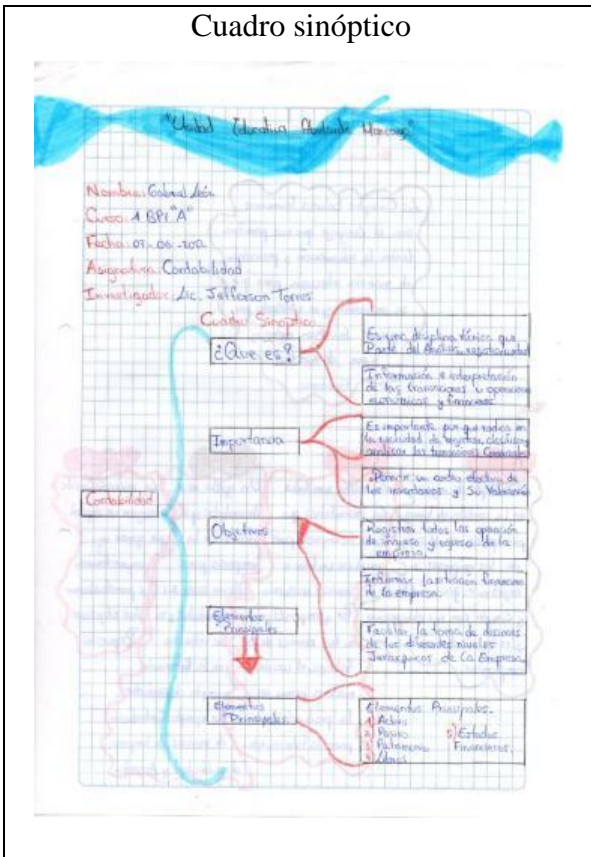 Cuadro sinóptico
"Unidad Educativa Abelardo Moncayo"
Nombre: Gabriel León
Curso: 1 BPI "A"
Fecha: 07-06-
Asignatura: Contabilidad
Investigador: Lic. Jefferson Torres
Cuadro Sinoptico
¿Que es?
Es una disciplina técnica que
Parte del Análisis
Información e interpretación
de las transacciones u operaciones
económicas y financieras
Importancia
Es importante por que radica en
la necesidad de registrar, clasificar
analizar las
Permitir un control efectivo de
los inventarios y Su Valoración
Contabilidad
Objetivos
Registrar todas las operación
de ingreso y egreso de la
empresa.
Informar financiera
de la empresa.
Facilitar la toma de decisiones
de los diferentes niveles
Jerarquicos de la Empresa
Elementos
Principales
Elementos
Principales
Elementos Principales.
1) Activo
2) Pasivo 5) Estados
3) Patrimonio Financieros.
4) Libros